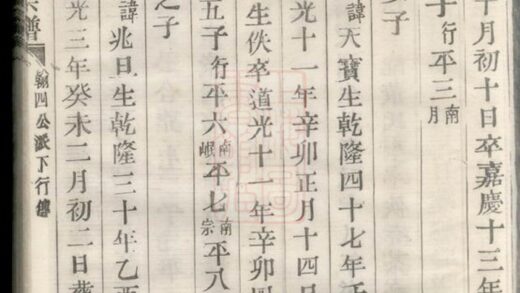 十月初十日卒嘉慶十三年
子行平三南月
子
諱天寶生乾隆四十七年
光十一年辛卯正月十四日
生佚卒道光十一年辛卯四
五子行平六南岷平七南宗平八
之子
諱兆旦生乾隆三十年乙酉
光三年癸未二月初二日葬
譜 翰四公派下行傳